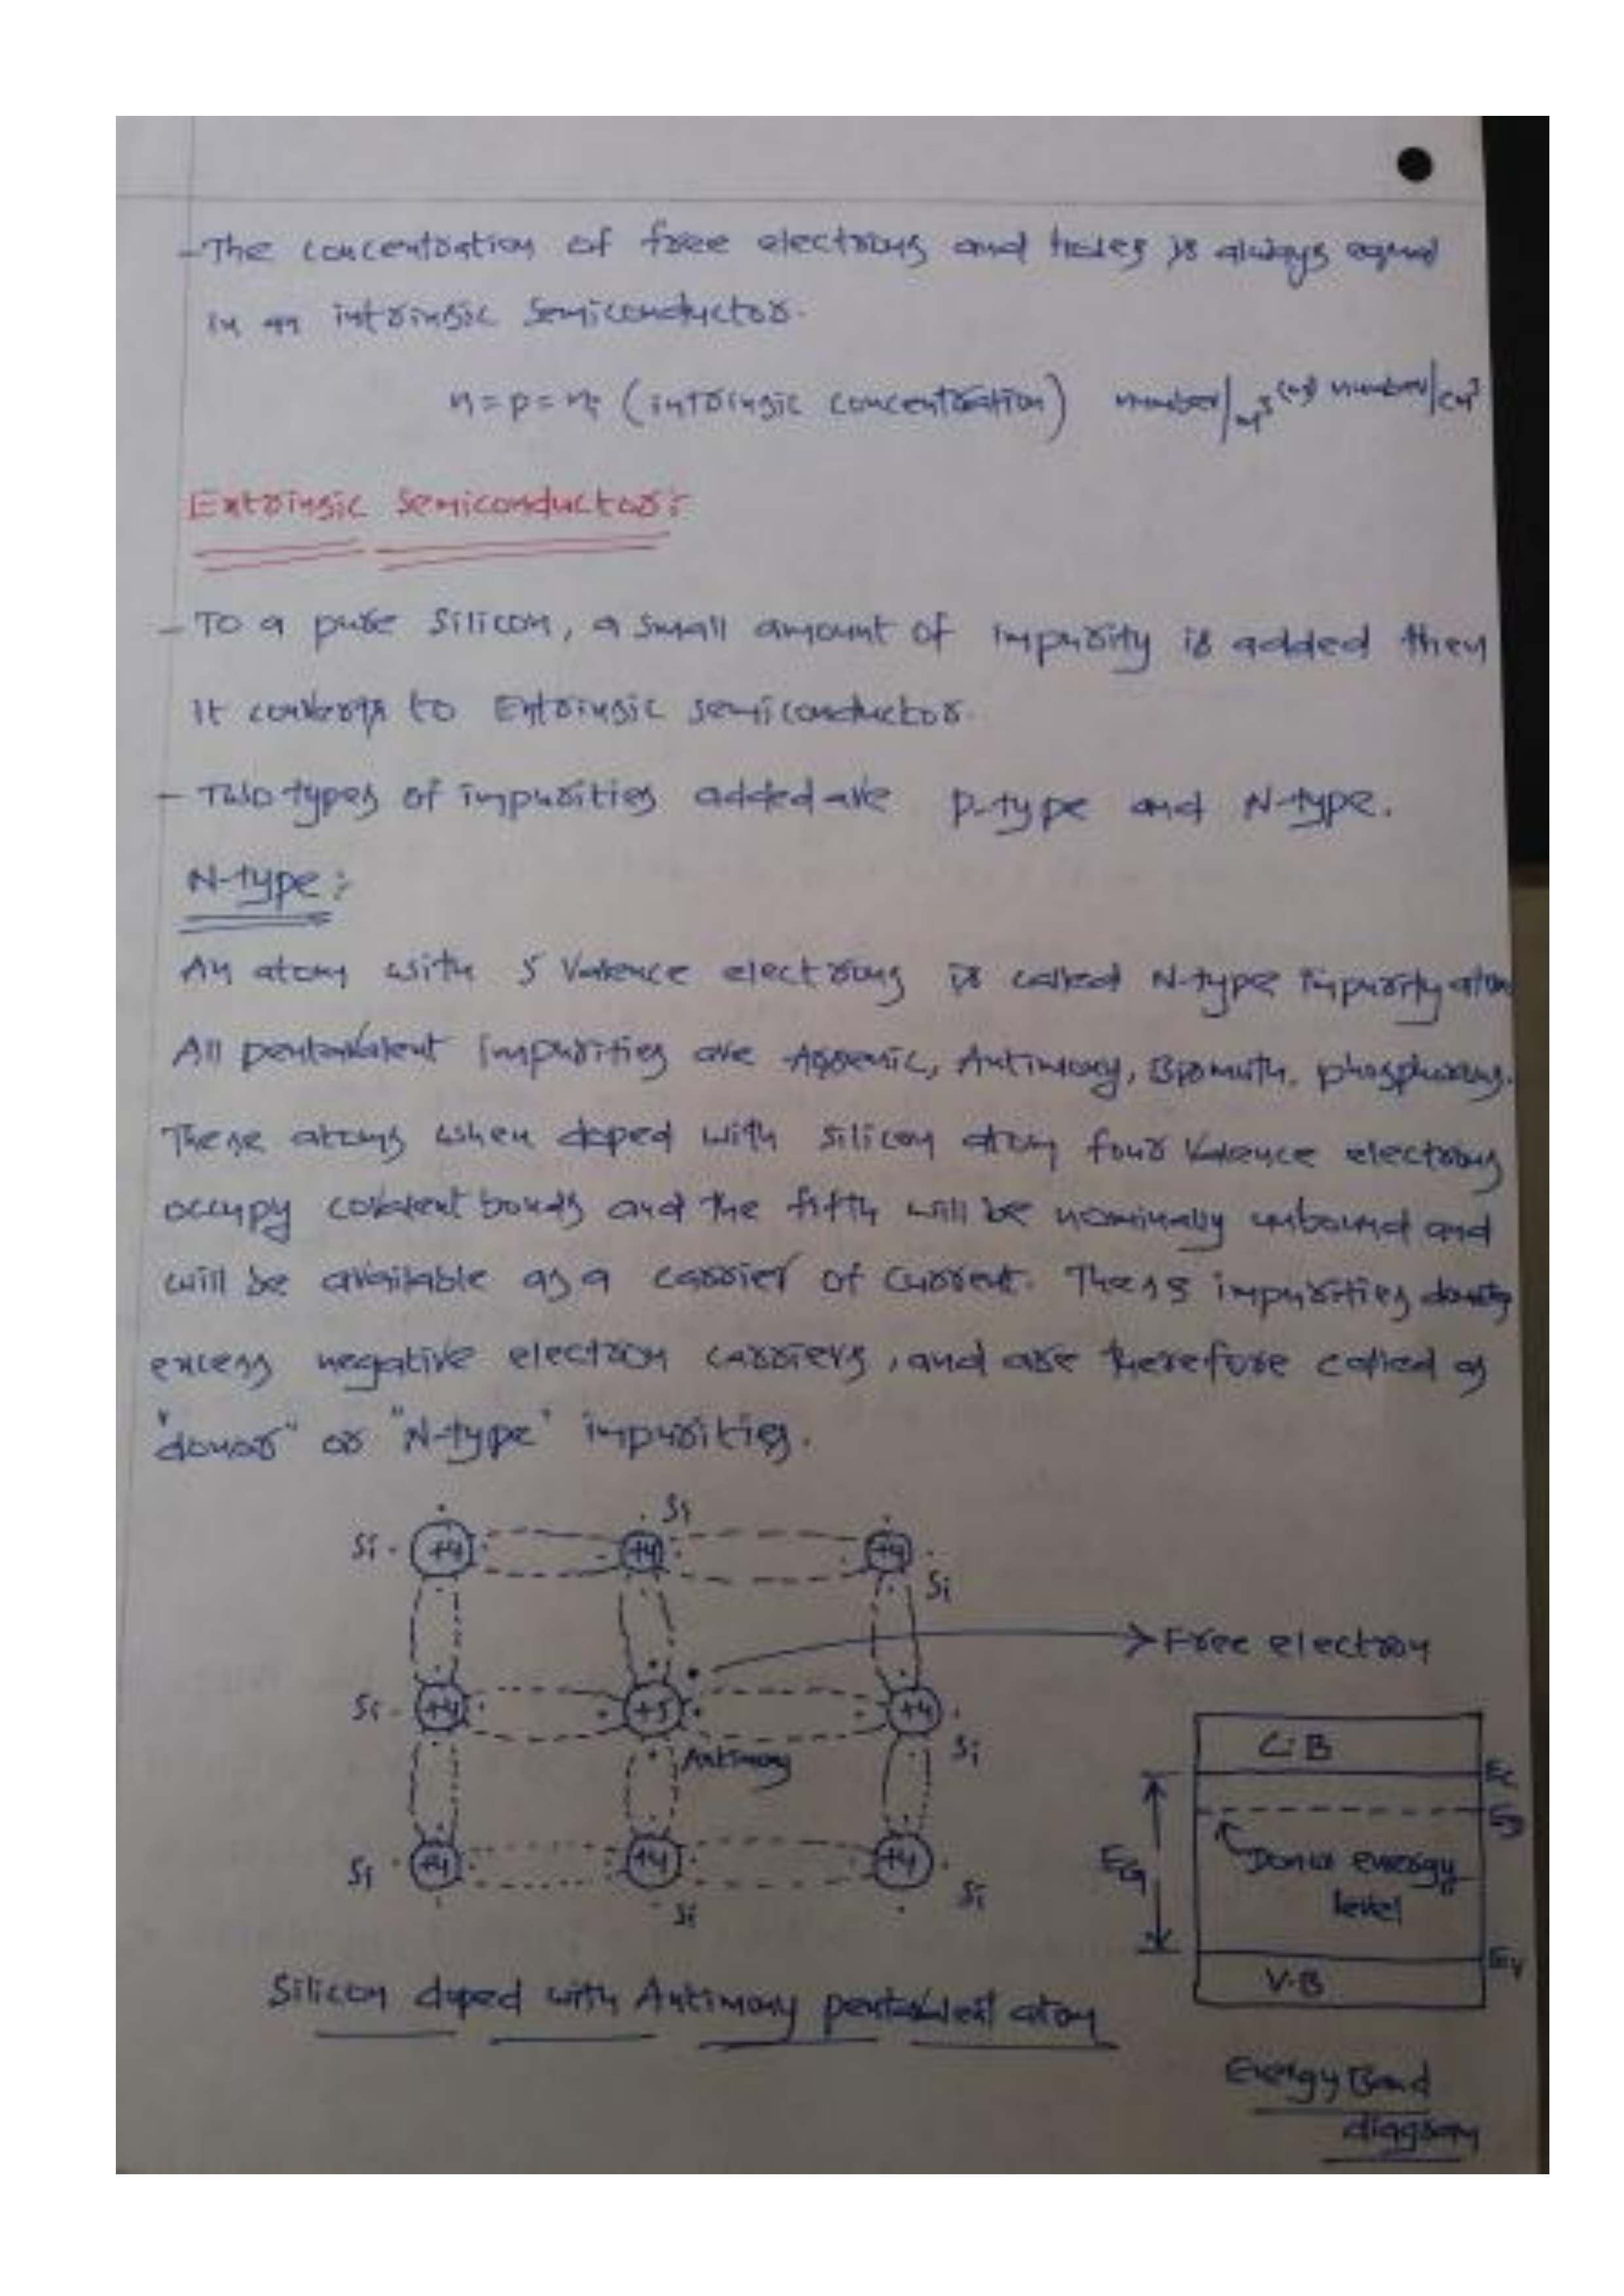 - The concentration of free electrons and holes is always equal
in an intrinsic semiconductor.
n = p = ni (intrinsic concentration) number/m³ (or) number/cm³
Extrinsic Semiconductor:
- To a pure Silicon, a small amount of impurity is added then
it converts to Extrinsic semiconductor.
- Two types of impurities added are P-type and N-type.
N-type:
An atom with 5 Valence electrons is called N-type impurity atom
All pentavalent impurities are Arsenic, Antimony, Bismuth, phosphorous.
These atoms when doped with silicon atom four Valence electrons
occupy covalent bonds and the fifth will be nominally unbound and
will be available as a carrier of current. These impurities donate
excess negative electron carriers, and are therefore called as
"donor" or "N-type" impurities.
Si
Si +4 +4 +4
Si
Free electron
Si +4 +5 +4
Antimony Si
Si +4 +4 +4
Si Si
C.B
EC
ED
EG
Donor energy
level
EV
V.B
Silicon doped with Antimony pentavalent atom
Energy Band
diagram